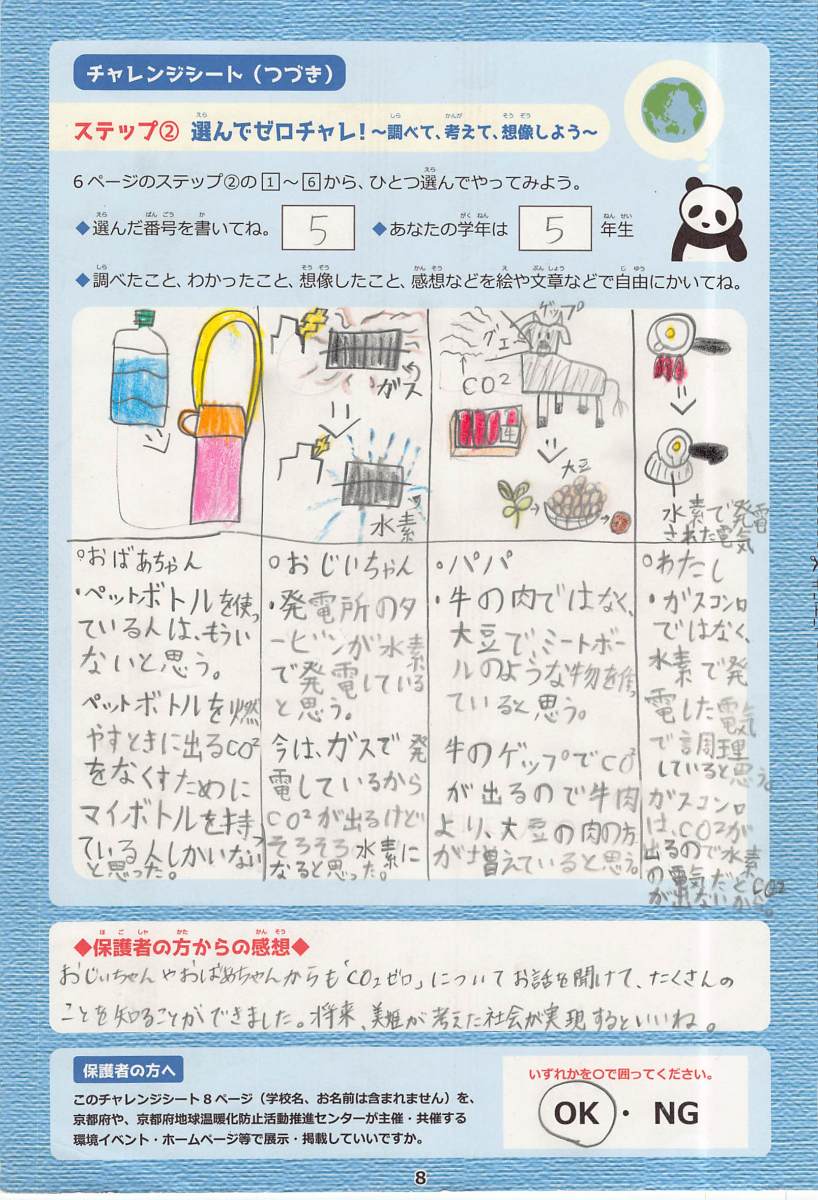 チャレンジシート（つづき）
ステップ② 選んでゼロチャレ！～調べて、考えて、想像しよう～
6ページのステップ②の1～6から、ひとつ選んでやってみよう。
◆選んだ番号を書いてね。 5 ◆あなたの学年は 5 年生
◆調べたこと、わかったこと、想像したこと、感想などを絵や文章などで自由にかいてね。
ガス
水素
ゲップ
グエ
CO2
牛
大豆
水素で発電
された電気
○おばあちゃん
・ペットボトルを使っ
ている人は、もうい
ないと思う。
ペットボトルを燃
やすときに出るCO2
をなくすために
マイボトルを持っ
ている人しかいない
と思った。
○おじいちゃん
・発電所のタ
ービンが水素
で発電している
と思う。
今は、ガスで発
電しているから
CO2が出るけど
そろそろ水素に
なると思った。
○パパ
・牛の肉ではなく、
大豆で、ミートボー
ルのような物を食っ
ていると思う。
牛のゲップでCO2
が出るので牛肉
より、大豆の肉の方
が増えていると思う。
○わたし
・ガスコンロ
ではなく、
水素で発
電した電気
で調理
していると思う。
ガスコンロ
は、CO2が
出るので水素
の電気だとCO2
が出ないから。
◆保護者の方からの感想◆
おじいちゃんやおばあちゃんからも「CO2ゼロ」についてお話を聞けて、たくさんの
ことを知ることができました。将来、美姫が考えた社会が実現するといいね。
保護者の方へ
このチャレンジシート8ページ（学校名、お名前は含まれません）を、
京都府や、京都府地球温暖化防止活動推進センターが主催・共催する
環境イベント・ホームページ等で展示・掲載していいですか。
いずれかを○で囲ってください。
OK・NG
8